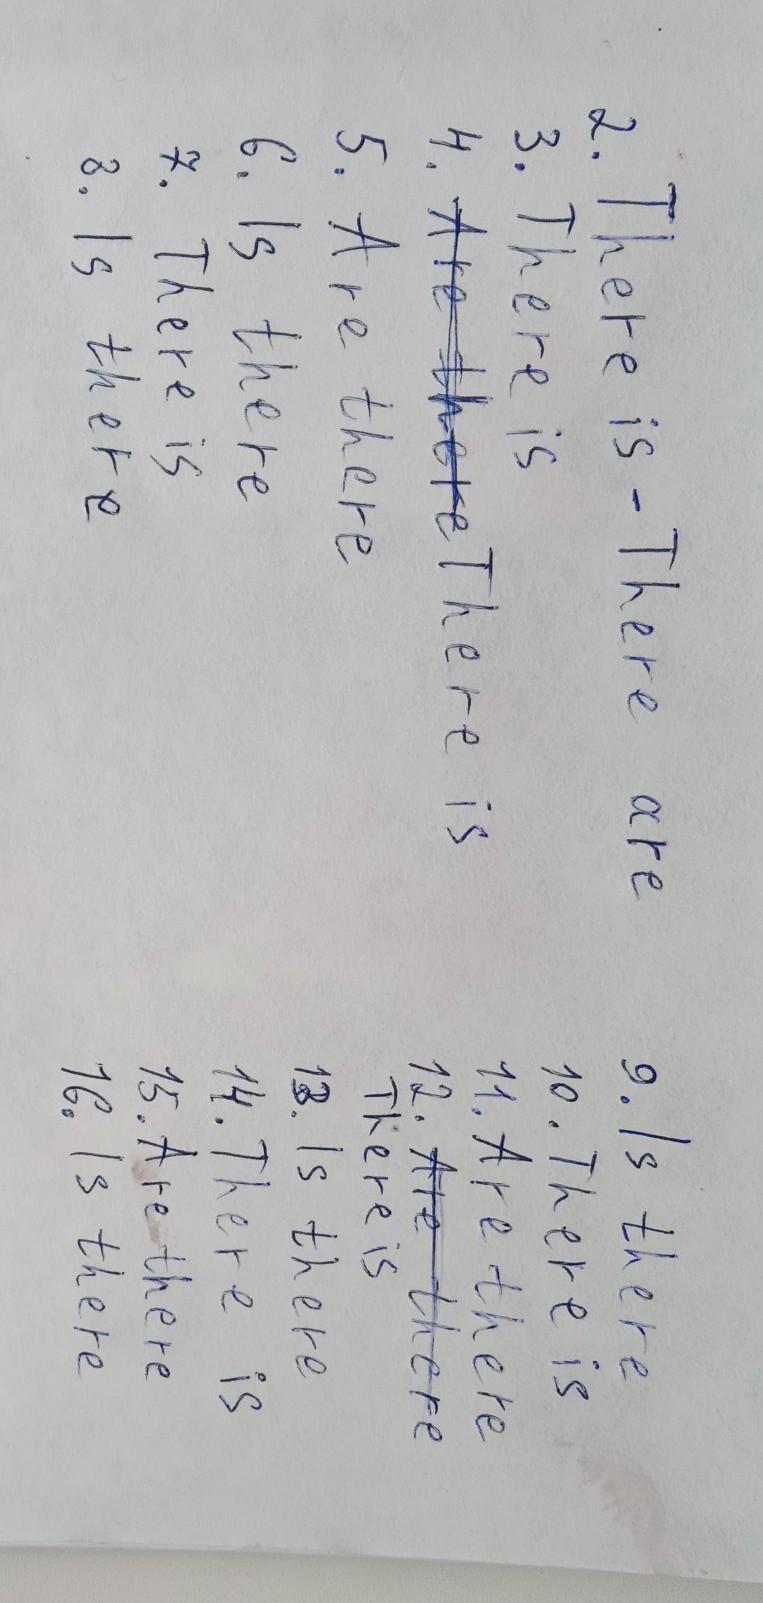 2. There is - There are
3. There is
4. Are there There is
5. Are there
6. Is there
7. There is
8. Is there
9. Is there
10. There is
11. Are there
12. Are there
There is
13. Is there
14. There is
15. Are there
16. Is there